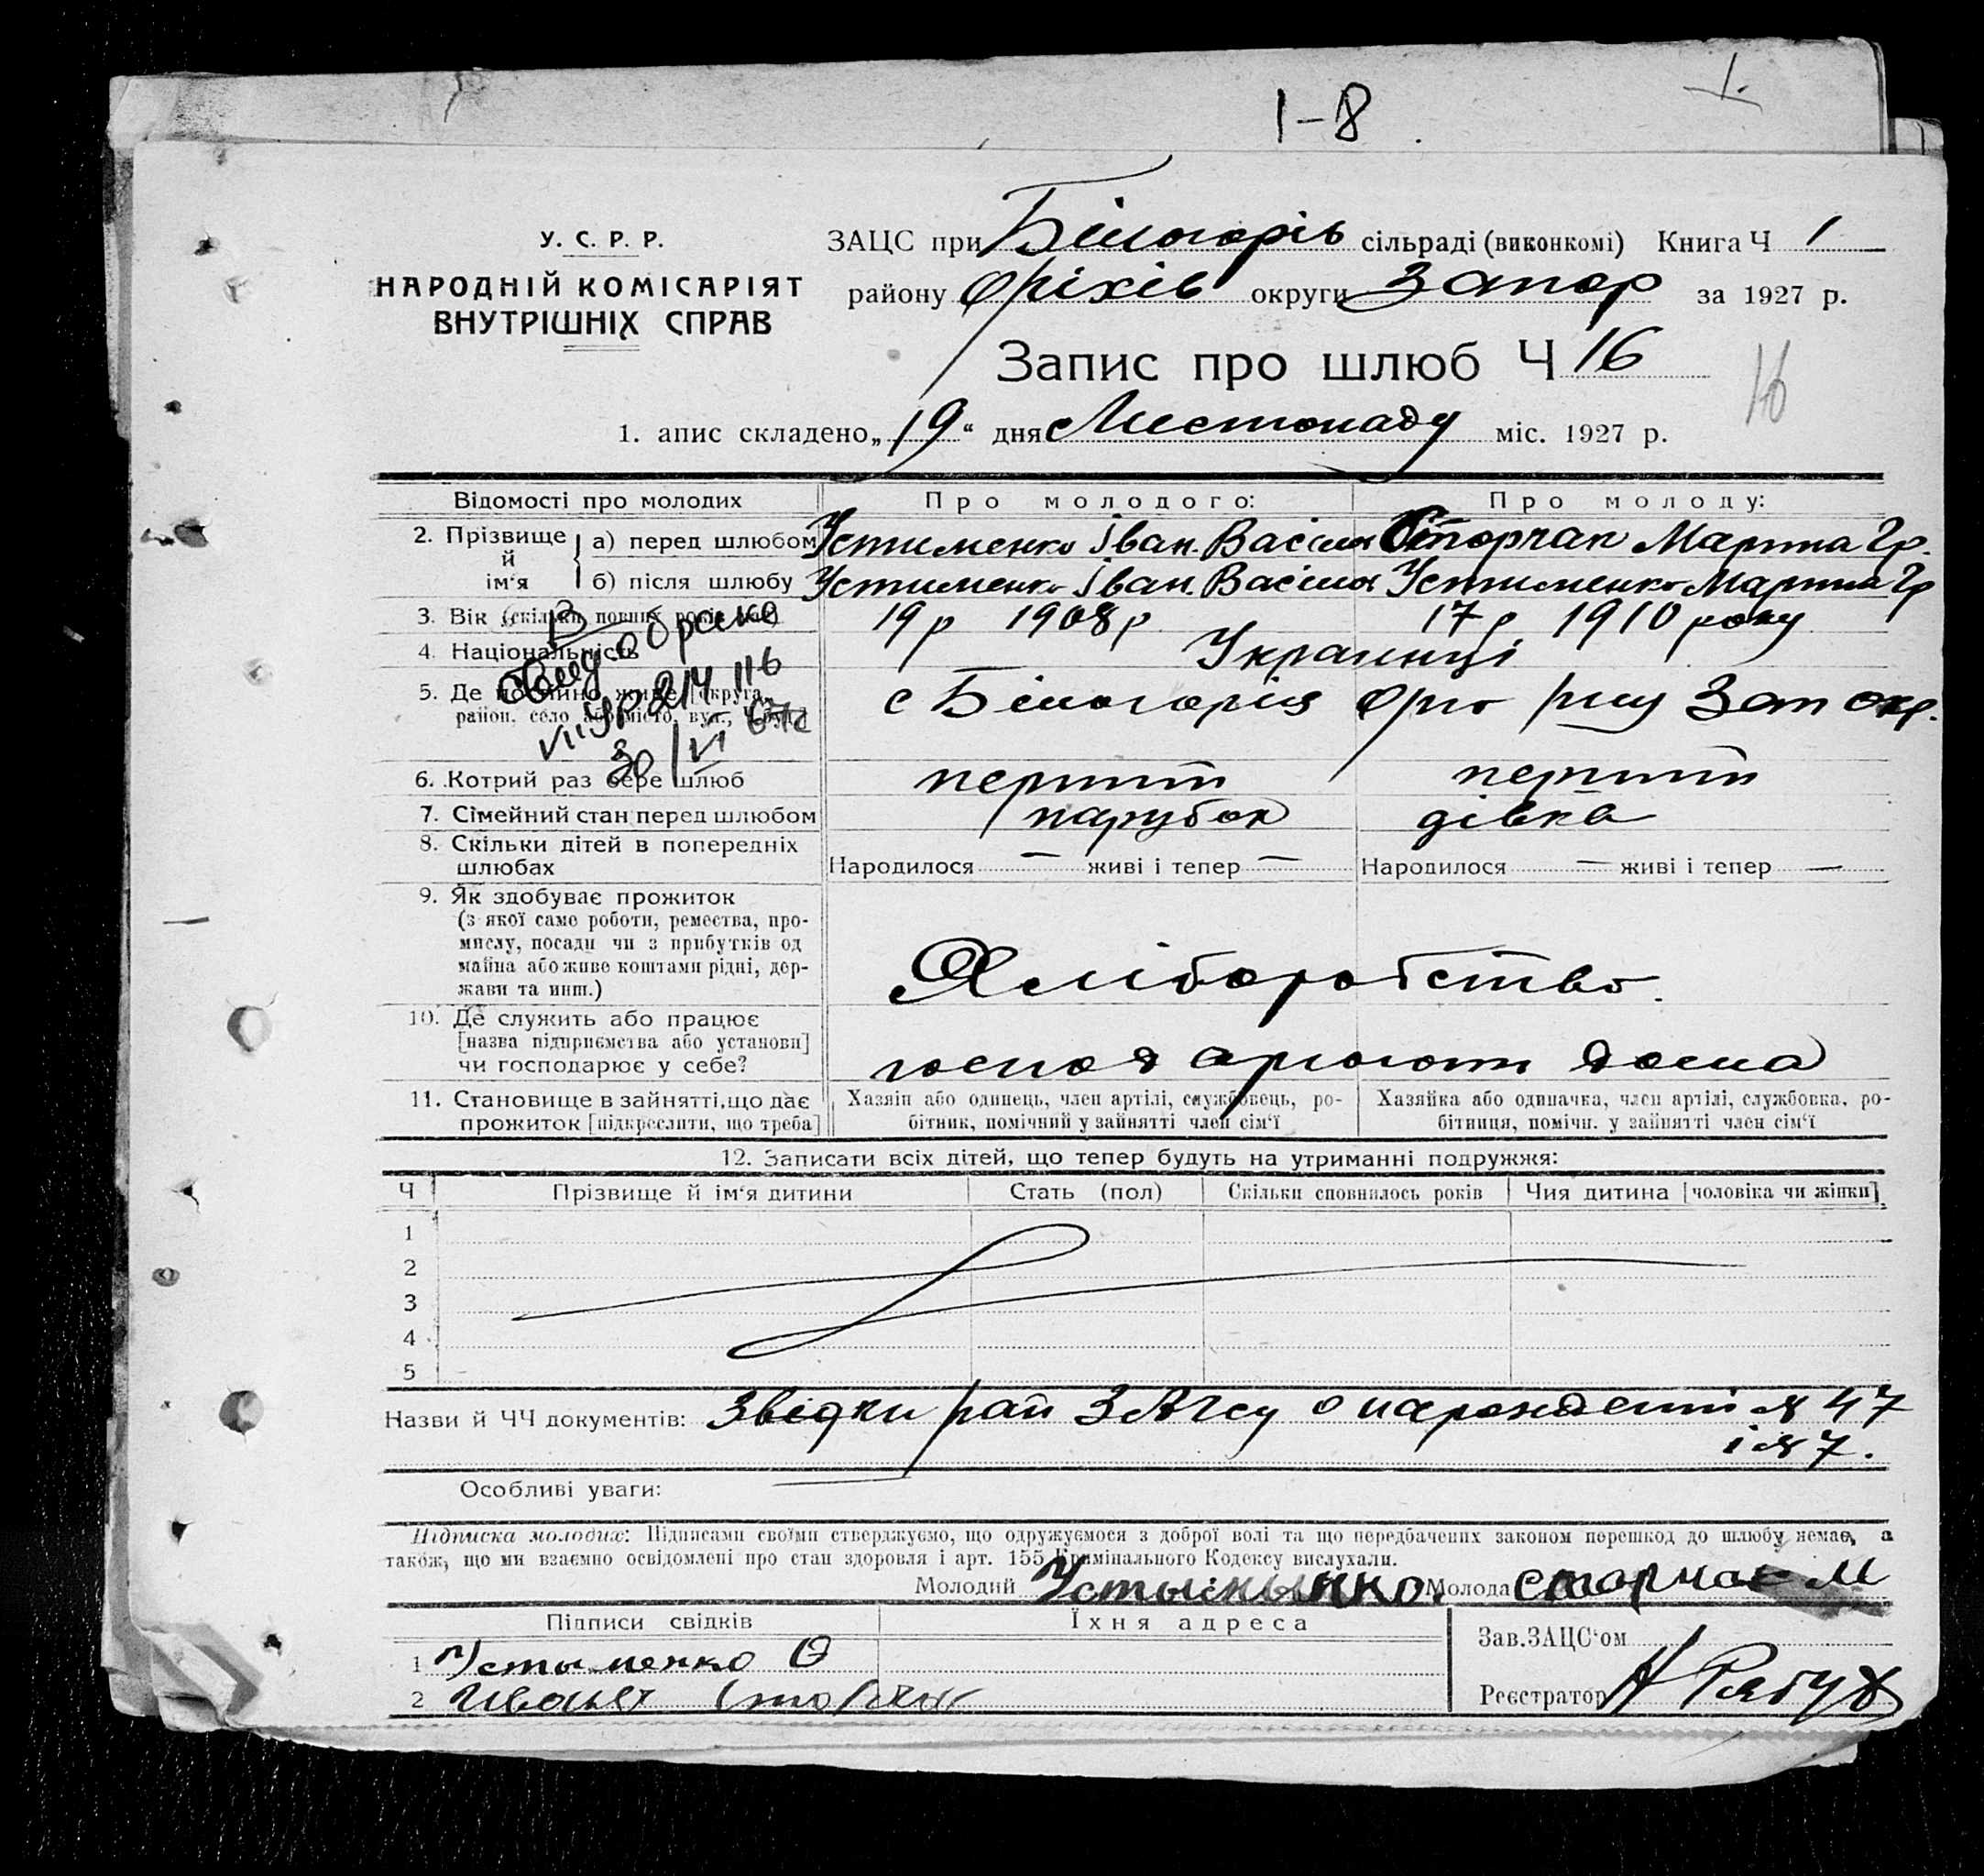 1-8
1.
У. С. Р. Р.
НАРОДНІЙ КОМІСАРІЯТ
ВНУТРІШНІХ СПРАВ
ЗАЦС при Білогорів сільраді (виконкомі) Книга Ч 1
району Оріхів округи Запор за 1927 р.
Запис про шлюб Ч 16
16
1. апис складено „19“ дня Листопаду міс. 1927 р.
Відомості про молодих
Про молодого:
Про молоду:
2. Прізвище й ім'я
а) перед шлюбом Устименко Іван. Васіл Сторчак Марина Гр.
б) після шлюбу Устименко Іван. Васіл Устименко Марина Гр
3. Вік (скільки повних років має) 19 р 1908 р 17 р 1910 року
4. Національність Украінці
5. Де постійно живе [округа,
район, село або місто, вул., Ч буд.] с Білогорія Оріх рну Зап окр.
В
обмену брако
VII УР 214116
30/VI 67г
6. Котрий раз бере шлюб перший перший
7. Сімейний стан перед шлюбом парубок дівка
8. Скільки дітей в попередніх
шлюбах Народилося — живі і тепер — Народилося — живі і тепер —
9. Як здобуває прожиток
(з якої саме роботи, ремества, про-
мислу, посади чи з прибутків од
майна або живе коштами рідні, дер-
жави та инш.)
Хліборобство.
10. Де служить або працює
[назва підприємства або установи]
чи господарює у себе?
господарюють дома
11. Становище в зайнятті, що дає
прожиток [підкреслити, що треба]
Хазяїн або одинець, член артілі, службовець, ро-
бітник, помічний у зайнятті член сім'ї
Хазяйка або одиначка, член артілі, службовка, ро-
бітниця, помічн. у зайнятті член сім'ї
12. Записати всіх дітей, що тепер будуть на утриманні подружжя:
Ч Прізвище й ім'я дитини Стать (пол) Скільки сповнилось років Чия дитина [чоловіка чи жінки]
1
2
3
4
5
Назви й ЧЧ документів: Звідки рай ЗАГСу о нарождениі № 47
і № 7.
Особливі уваги:
Підписка молодих: Підписами своїми стверджуємо, що одружуємося з доброї волі та що передбачених законом перешкод до шлюбу немає, а
також, що ми взаємно освідомлені про стан здоровля і арт. 155 Кримінального Кодексу вислухали.
Молодий Устыменко. Молода сторчак М
Підписи свідків
Їхня адреса
1 Устыменко О
2 Иван Сторчак
Зав. ЗАЦС'ом
Реєстратор Н Рябуха